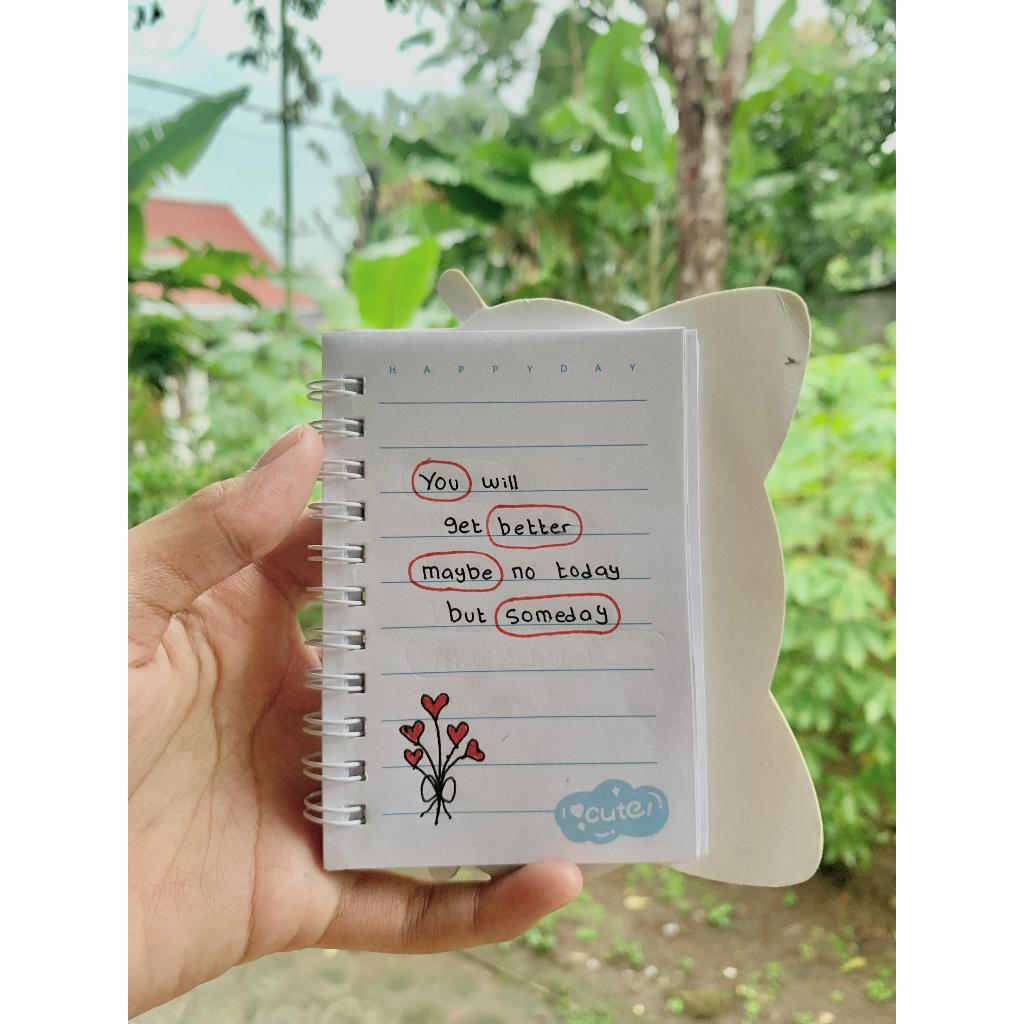 HAPPY DAY
You will
get better
maybe no today
but someday
cute!